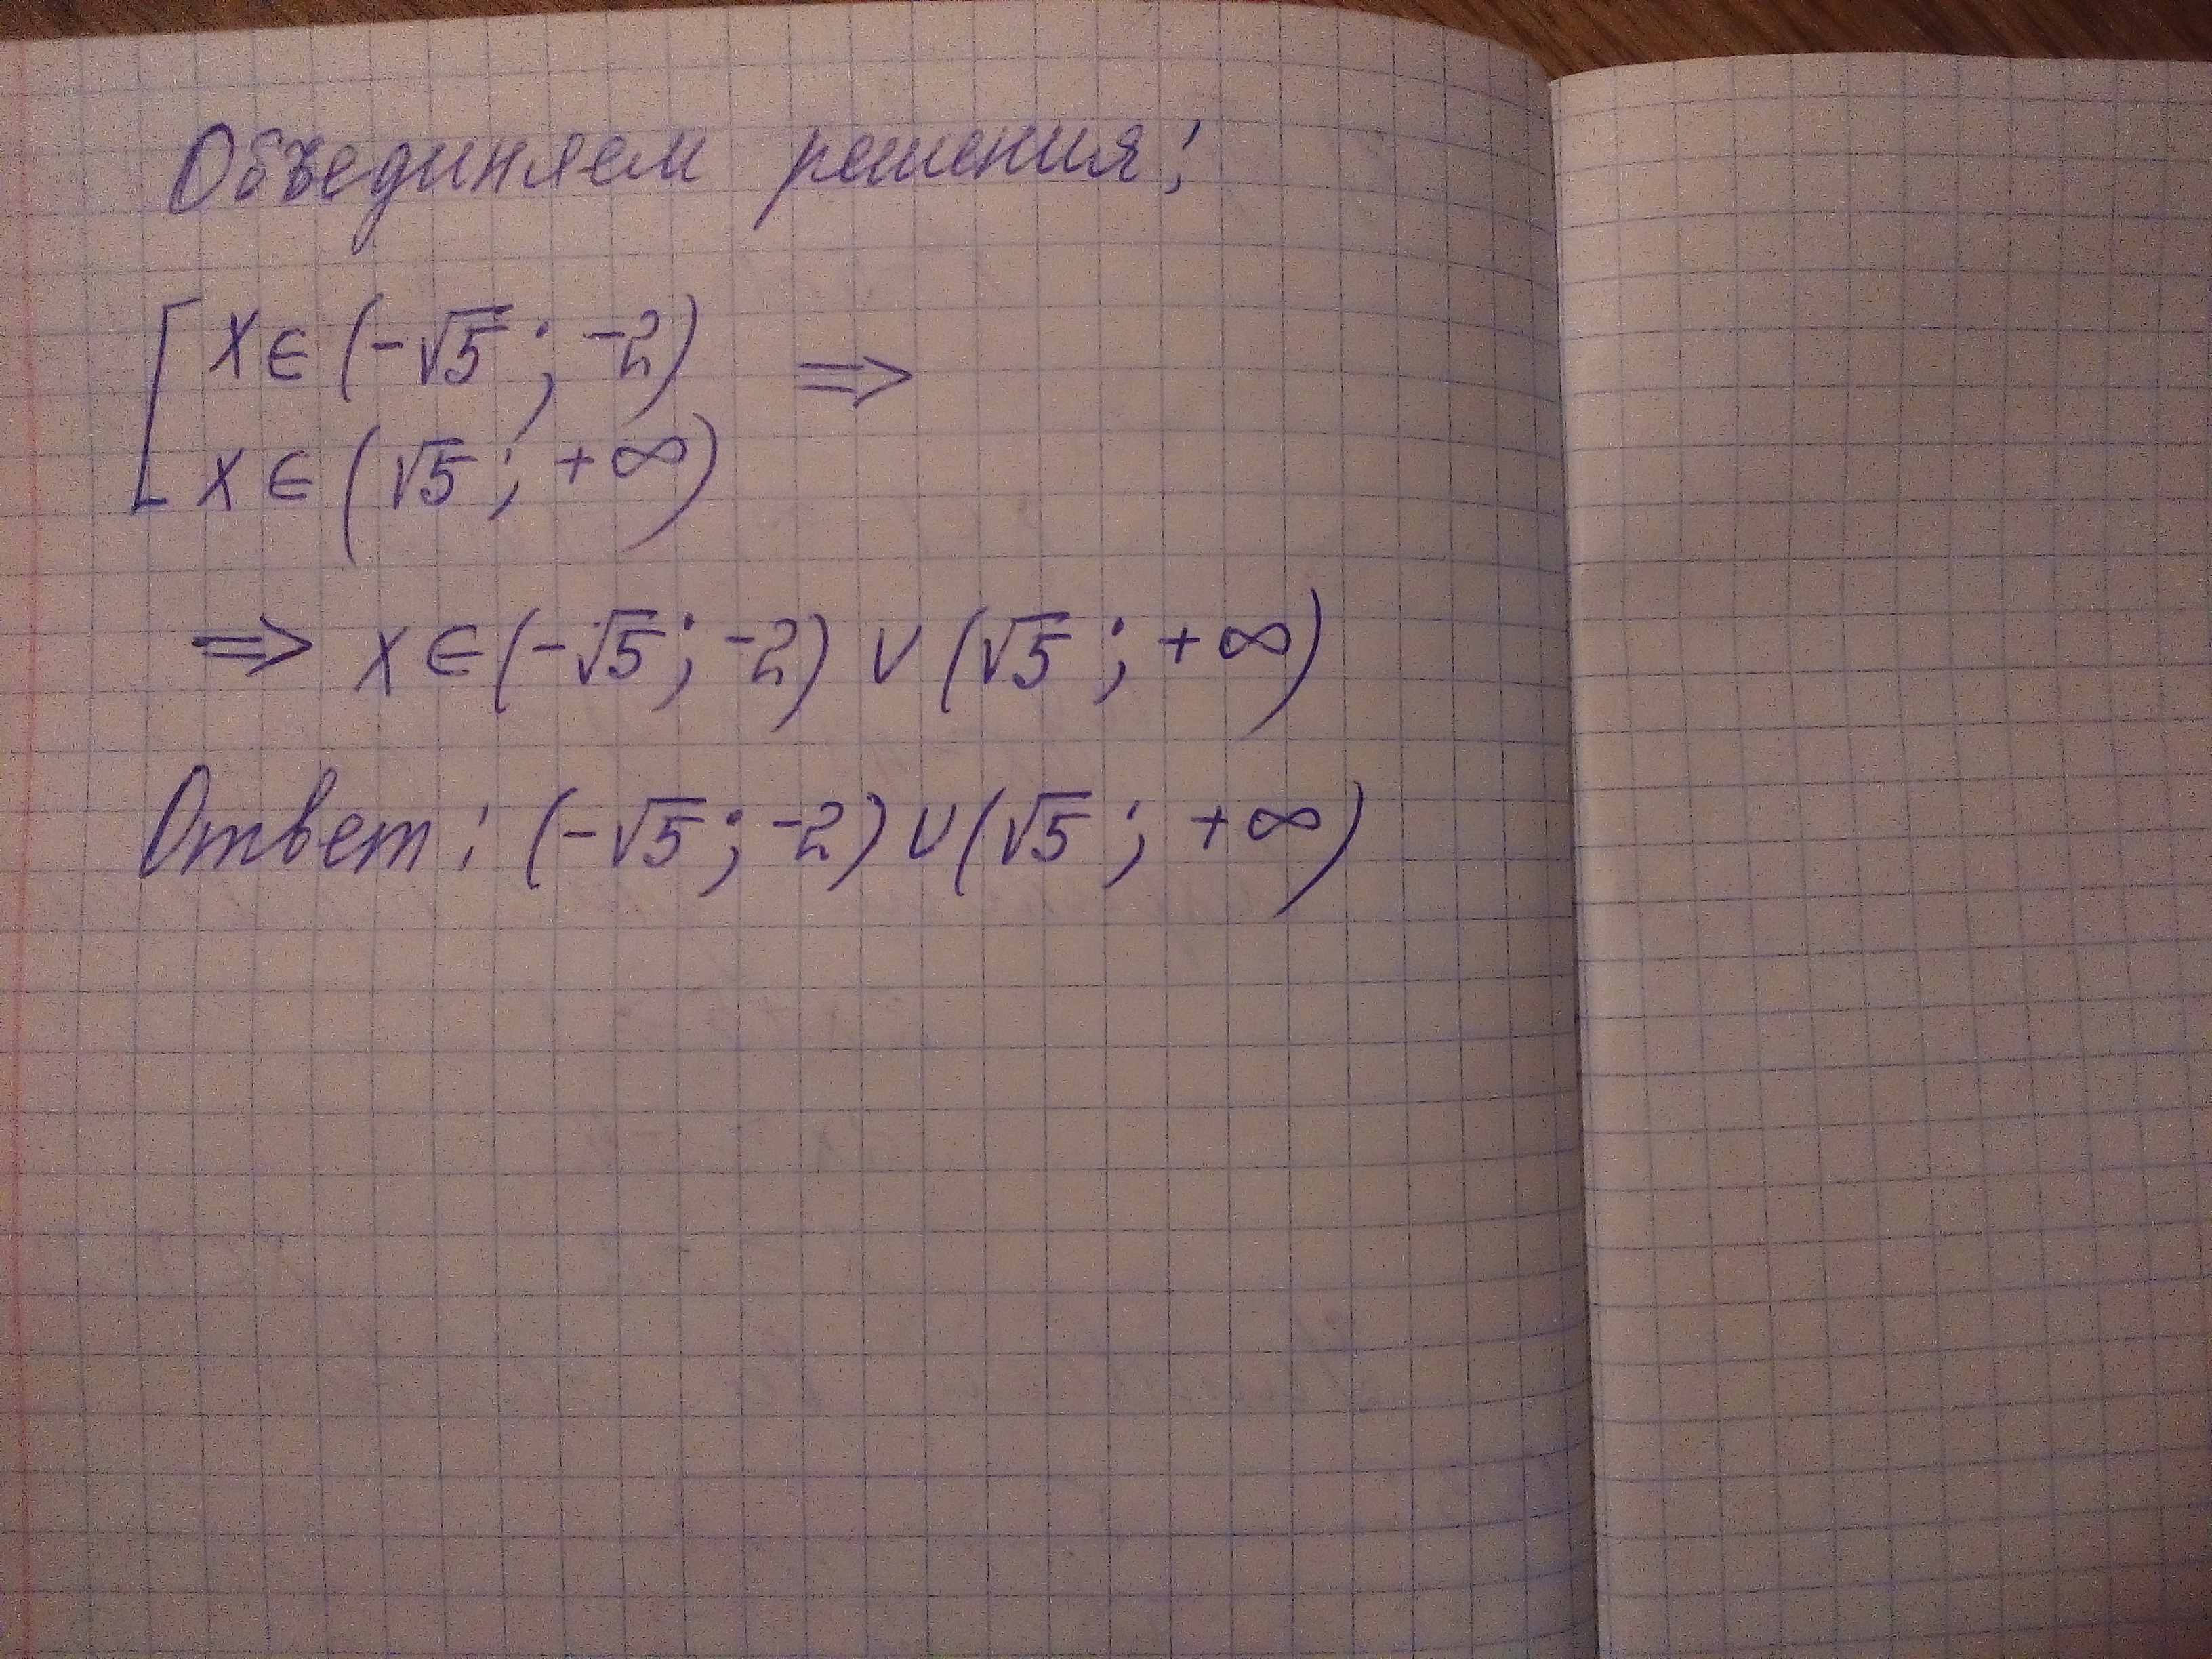 Объединяем решения:
[ x ∈ (-√5; -2) ⇒
x ∈ (√5; +∞)
⇒ x ∈ (-√5; -2) ∪ (√5; +∞)
Ответ: (-√5; -2) ∪ (√5; +∞)